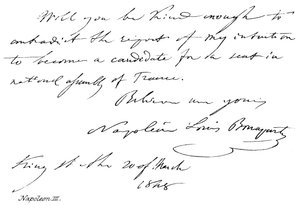 Will you be kind enough to
contradict the report of my intention
to become a candidate for a seat in
national assembly of France.
Believe me yours
Napoleon Louis Bonaparte
King St the 20 of March
1848
Napoleon III.